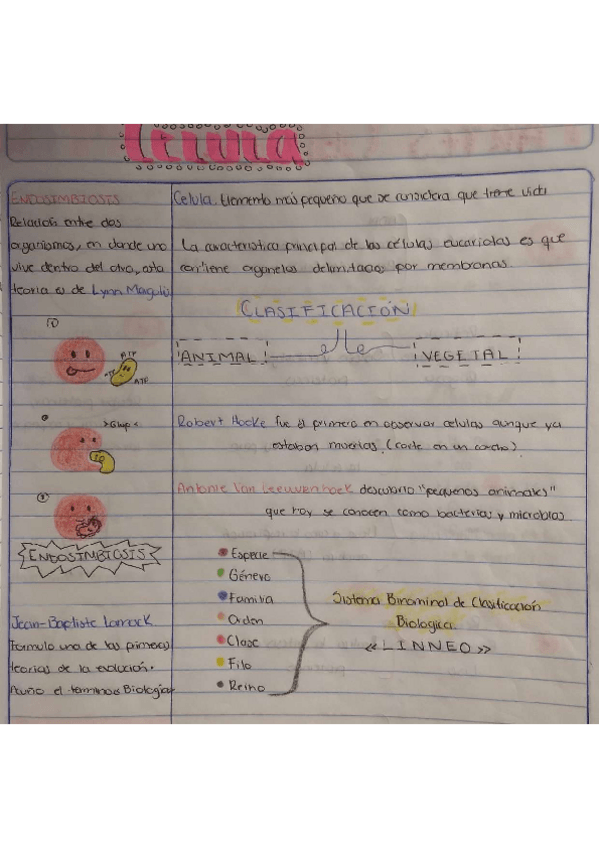 Celula
ENDOSIMBIOSIS
Relación entre dos
organismos, en donde uno
vive dentro del otro, esta
teoria es de Lynn Margulis
①
ATP
ATP
ATP
>Glup<
ENDOSIMBIOSIS
Jean-Baptiste Lamarck
Formulo una de las primeras
teorias de la evolución.
Acuño el termino Biología
Celula. Elemento más pequeño que se considera que tiene vida
La caracteristica principal de las células eucariotas es que
contiene organelos delimitados por membranas.
CLASIFICACIÓN
ANIMAL
VEGETAL
Robert Hooke fue el primero en observar celulas aunque ya
estaban muertas. (corte en un corcho).
Antonie Van Leeuwenhoek descubrio "pequeños animales"
que hoy se conocen como bacterias y microbios.
• Especie
• Género
• Familia
• Orden
• Clase
• Filo
• Reino
Sistema Binominal de Clasificación
Biologica.
«LINNEO»